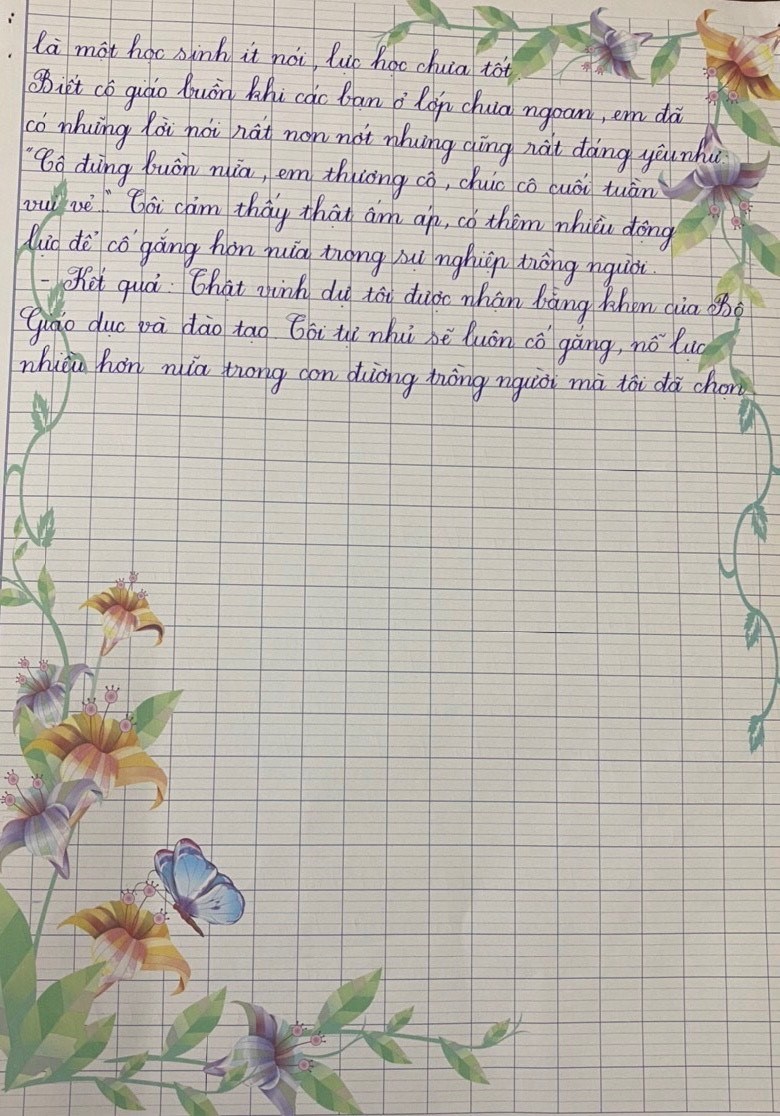 là một học sinh ít nói, lực học chưa tốt.
Biết cô giáo buồn khi các bạn ở lớp chưa ngoan, em đã
có những lời nói rất non nớt nhưng cũng rất đáng yêu như:
"Cô đừng buồn nữa, em thương cô, chúc cô cuối tuần
vui vẻ." Tôi cảm thấy thật ấm áp, có thêm nhiều động
lực để cố gắng hơn nữa trong sự nghiệp trồng người.
- Kết quả: Thật vinh dự tôi được nhận bằng khen của Bộ
Giáo dục và đào tạo. Tôi tự nhủ sẽ luôn cố gắng, nỗ lực
nhiều hơn nữa trong con đường trồng người mà tôi đã chọn.